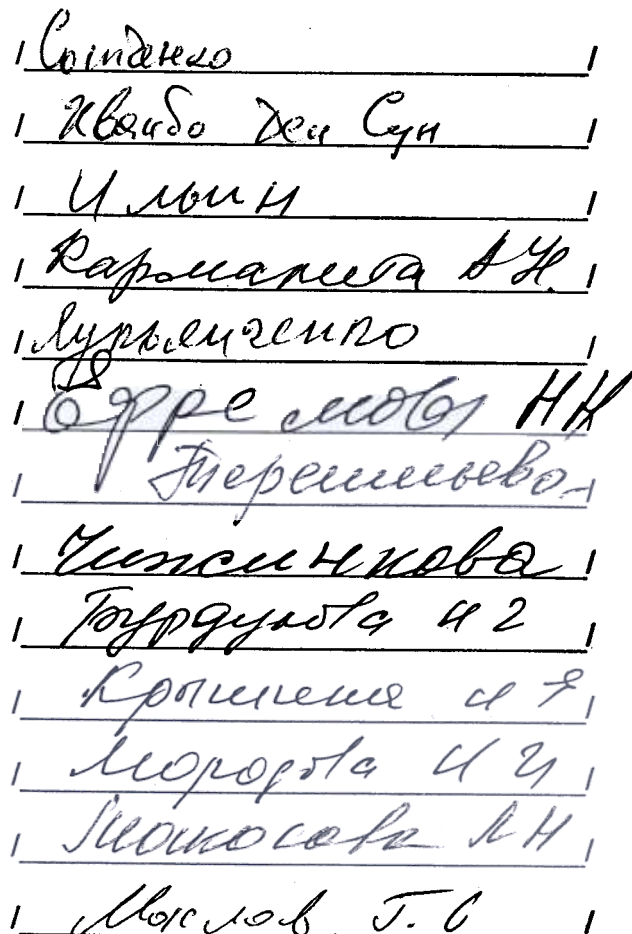 Сыпденко
Квайбо Ден Сун
Ильин
Кармалита А Н.
Лурьянченко
Ефремова Н К
Терентьева
Чижинкова
Бурдукова И Г
Крышина И Я
Мородова И И
Мокосова Л Н
Маслов Г. С